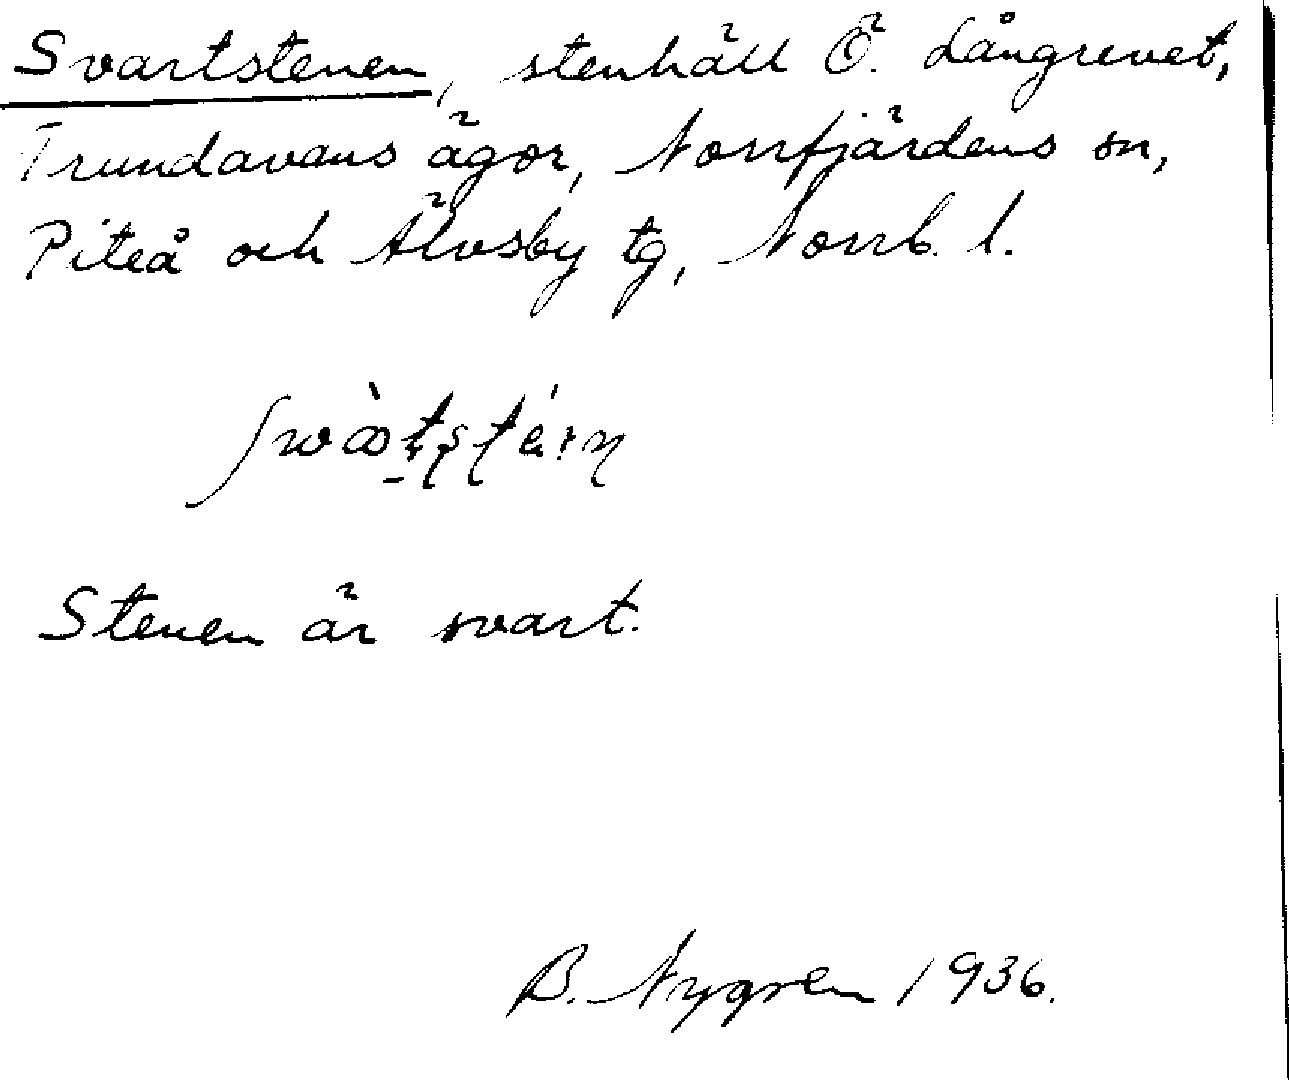 Svartstenen, stenhäll Ö. Långrevet,
Trundavans ägor, Norrfjärdens sn,
Piteå och Älvsby tg, Norrb. l.
Stenen är svart.
B. Nygren 1936.